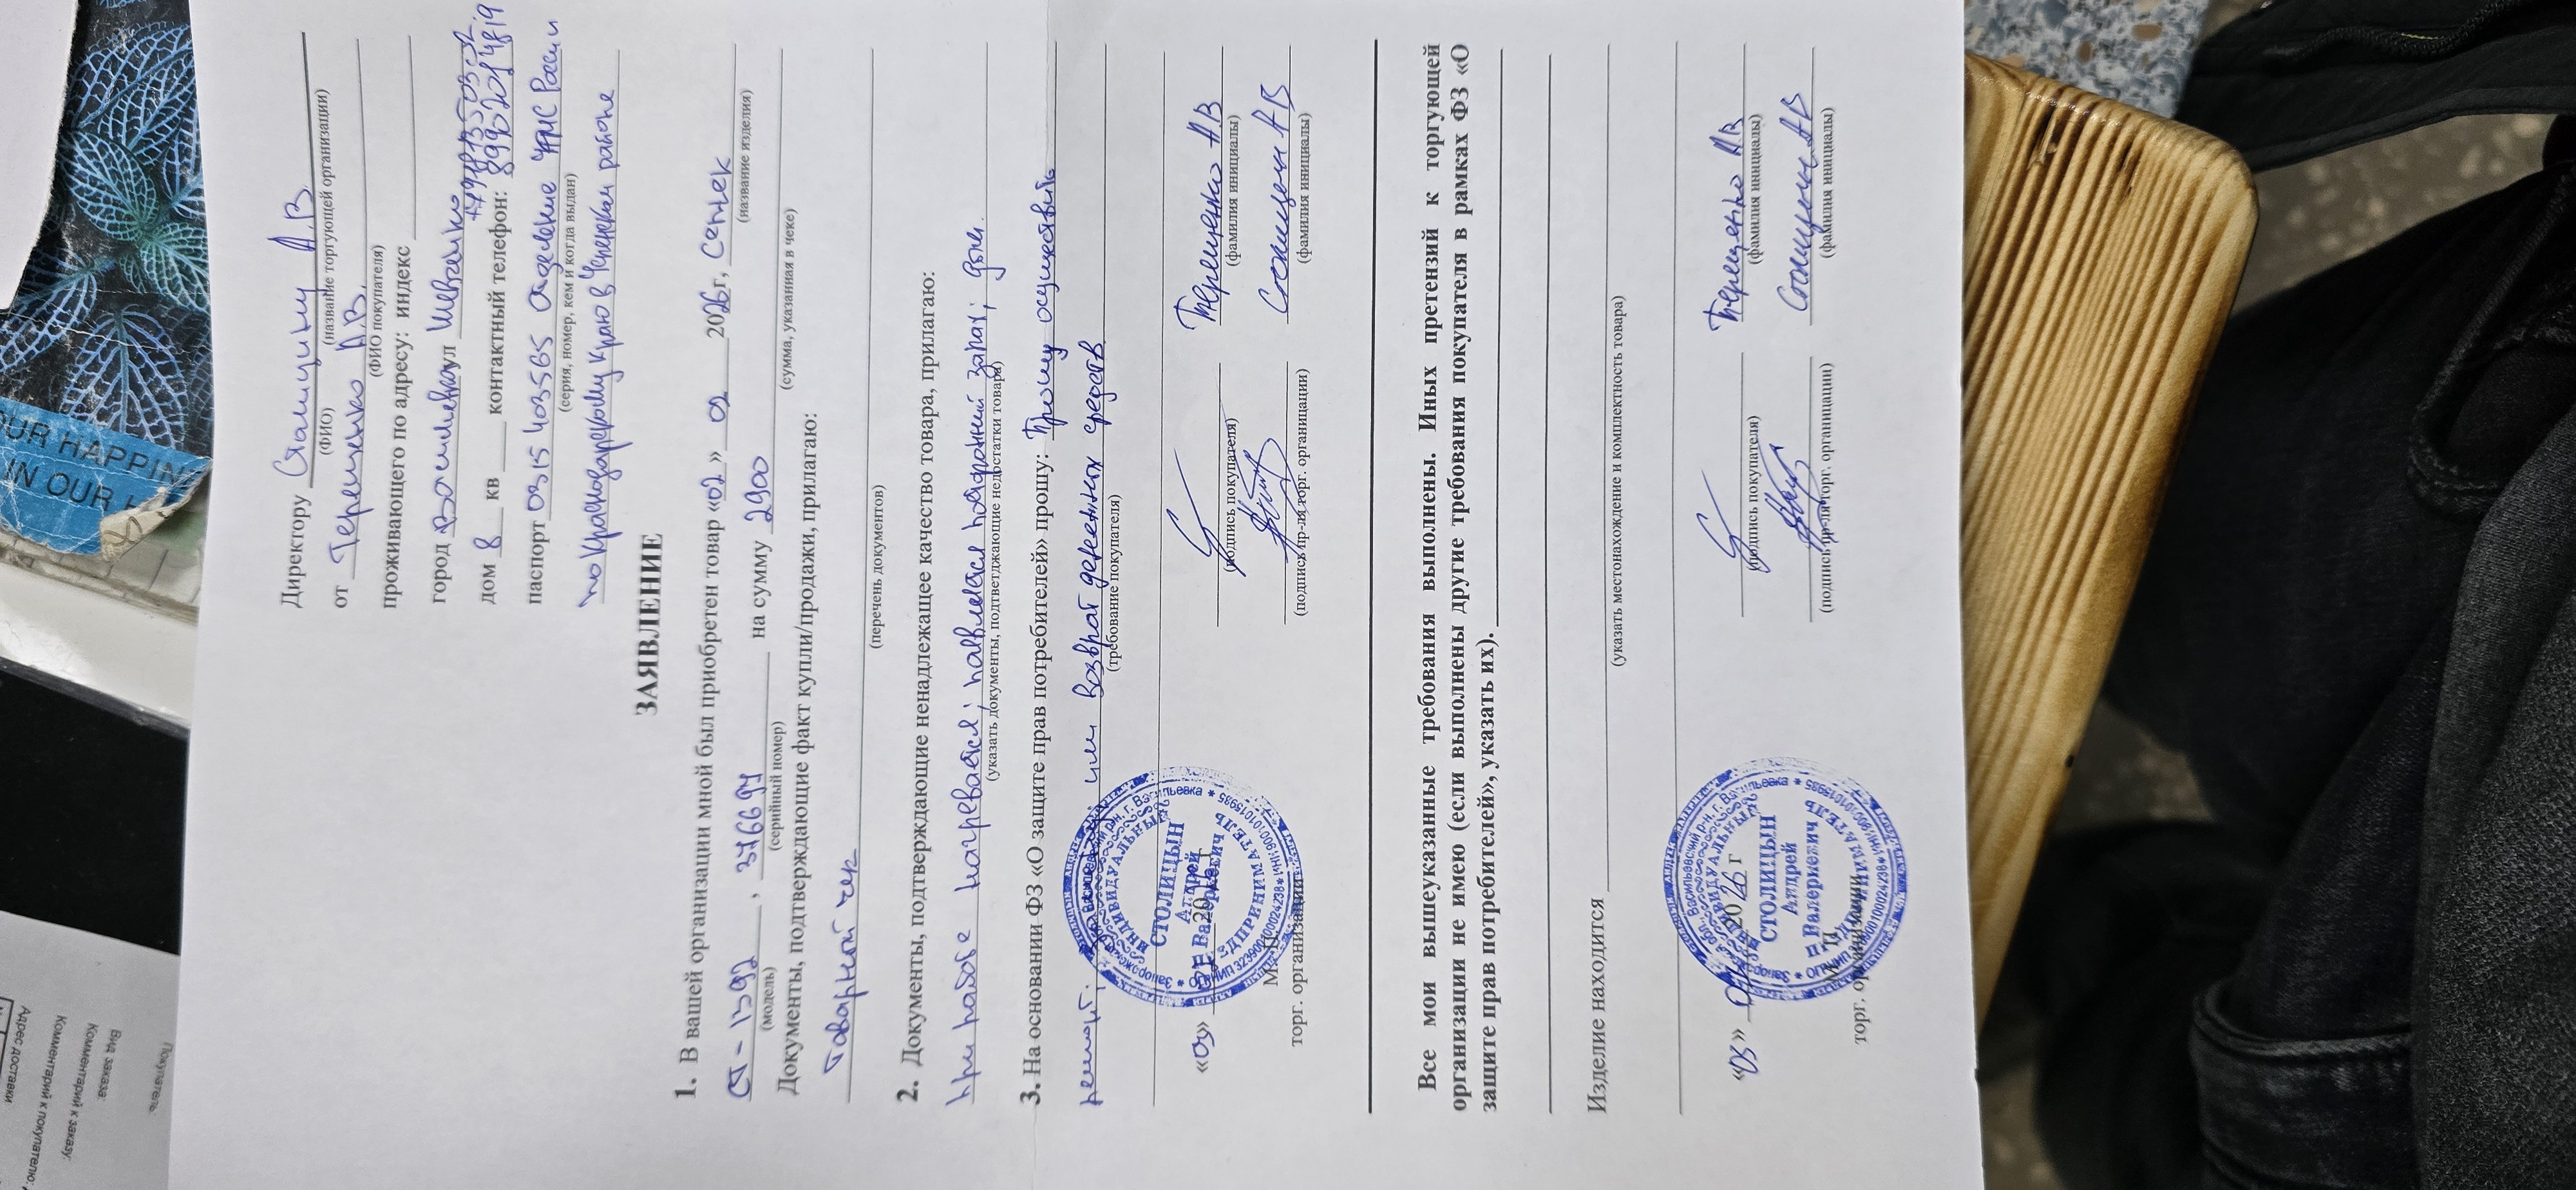 Директору Столицину А.В
(ФИО) (название торгующей организации)
от Терещенко А.В.
(ФИО покупателя)
проживающего по адресу: индекс
город Васильевка ул Шевченко
дом 8 кв контактный телефон: 89902014819
паспорт 0315 403565 Отделение УФМС России
(серия, номер, кем и когда выдан)
по Краснодарскому краю в районе
ЗАЯВЛЕНИЕ
1. В вашей организации мной был приобретен товар «02» 02 2026г,
(название изделия)
СТ-1392, 3766 94 на сумму 2900
(модель) (серийный номер) (сумма, указанная в чеке)
Документы, подтверждающие факт купли/продажи, прилагаю:
Товарный чек
(перечень документов)
2. Документы, подтверждающие ненадлежащее качество товара, прилагаю:
при работе нагревается; появляется посторонний запах; дым.
(указать документы, подтветджающие недостатки товара)
3. На основании ФЗ «О защите прав потребителей» прошу: Прошу осуществить
ремонт; или возврат денежных средств
(требование покупателя)
Терещенко А.В
(подпись покупателя) (фамилия инициалы)
«03» 20
М.П.
торг. организации
(подпись пр-ля торг. организации) (фамилия инициалы)
ИНДИВИДУАЛЬНЫЙ
СТОЛИЦЫН
Андрей
Валериевич
ПРЕДПРИНИМАТЕЛЬ
Все мои вышеуказанные требования выполнены. Иных претензий к торгующей
организации не имею (если выполнены другие требования покупателя в рамках ФЗ «О
защите прав потребителей», указать их).
Изделие находится
(указать местонахождение и комплектность товара)
Терещенко А.В
(подпись покупателя) (фамилия инициалы)
«03» 2026 г
М.П.
торг. организации
(подпись пр-ля торг. организации) (фамилия инициалы)
ИНДИВИДУАЛЬНЫЙ
СТОЛИЦЫН
Андрей
Валериевич
ПРЕДПРИНИМАТЕЛЬ
OUR HAPPIN
IN OUR
Покупатель
Вид заказа:
Комментарий к заказу:
Комментарий к покупателю:
Адрес доставки